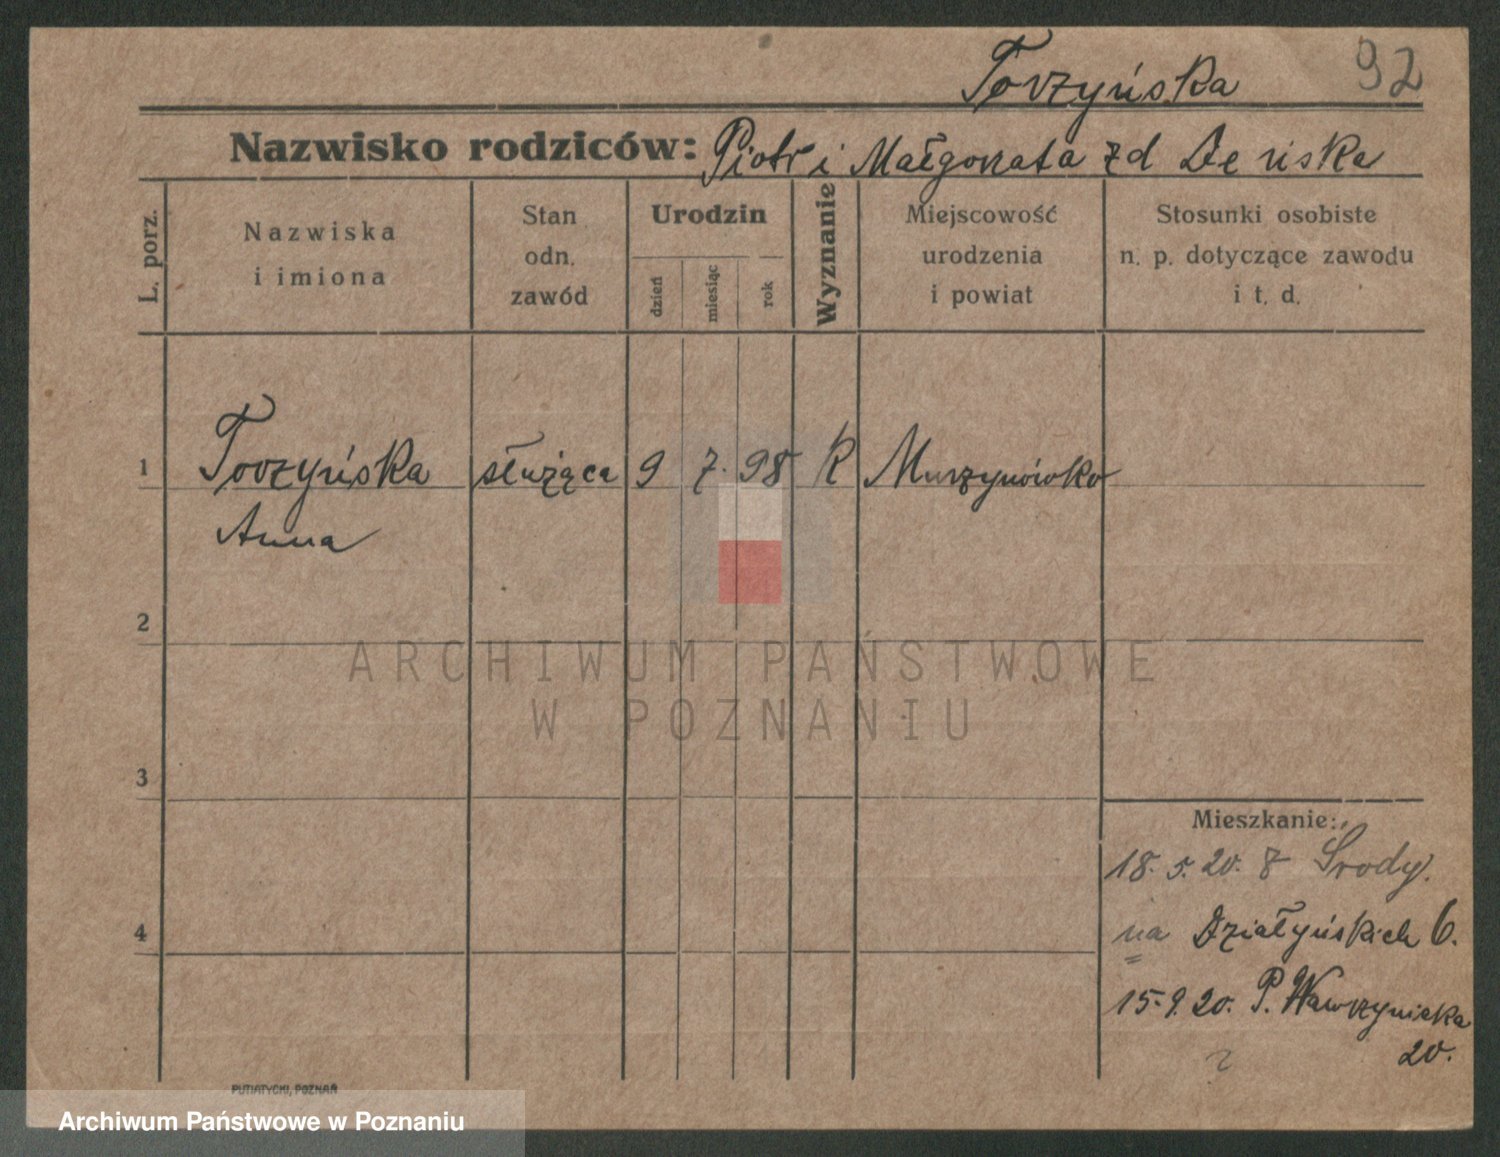 Torzyńska 92
Nazwisko rodziców: Piotr i Małgorzata zd
L. porz.
Nazwiska
i imiona
Stan
odn.
zawód
Urodzin
dzień
miesiąc
rok
Wyznanie
Miejscowość
urodzenia
i powiat
Stosunki osobiste
n. p. dotyczące zawodu
i t. d.
1 Torzyńska służąca 9 7. 98 K Murzynówko
Anna
2
3
4
Mieszkanie:
18. 5. 20. z Środy.
na Działyńskich 6.
15. 9. 20. P. Wawrzyniaka
20.
PUTIATYCKI, POZNAŃ
ARCHIWUM PAŃSTWOWE
W POZNANIU
Archiwum Państwowe w Poznaniu